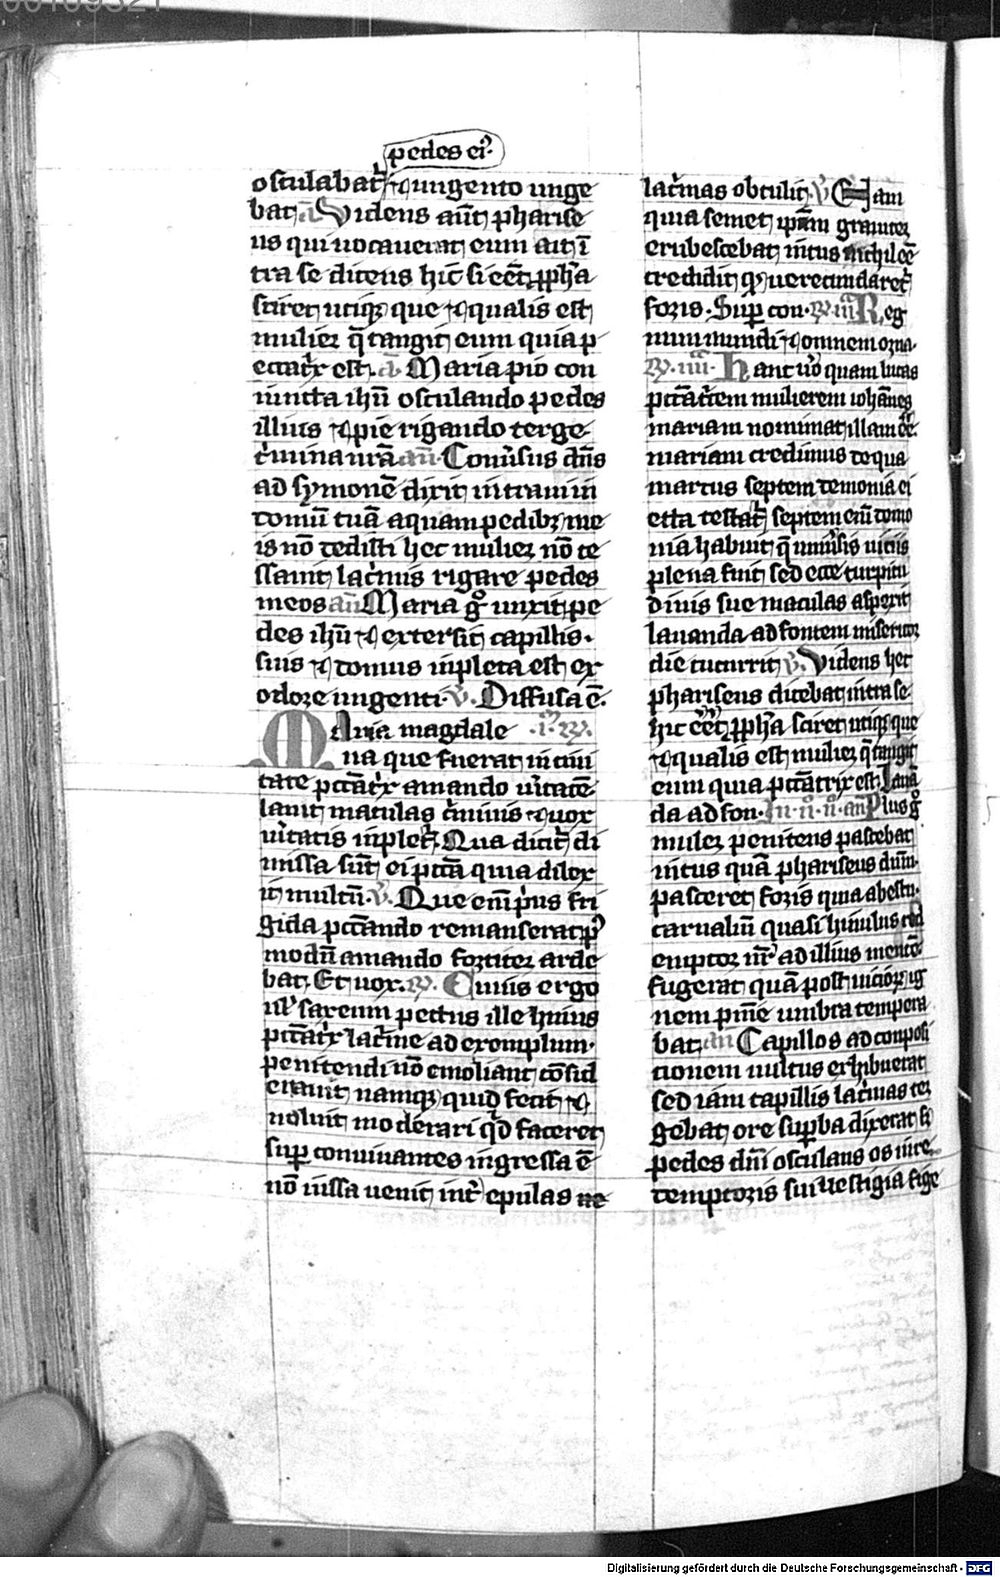 pedes ei⁹
osculabat᷑ ⁊ ungento unge
bat a̅ Videns aut̅ pharise
us qui uocauerat eum ait i̅
tra se dicens hic si e̅et p̅pha
sciret utiq; que ⁊ qualis est
mulier q̅ tangit eum quia p
eccat᷑x est. a̅. Maria pio con
iuncta ihu̅ osculando pedes
illius ⁊ pie rigando terge
c᷑mina n̅ra an̅ Conu᷑sus dn̅s
ad symone̅ dixit intraui in
domu̅ tua̅ aquam pedib; me
is no̅ dedisti hec mulier no̅ ce
ssauit lac᷑mis rigare pedes
meos an̅ Maria g̊ unxit pe
des ihu̅ ⁊ extersit capillis
suis ⁊ domus inpleta est ex
odore ungenti. v̅. Diffusa e̅.
Maria magdale .i. R̷.
na que fuerat in ciui
tate pcc̅at᷑x amando u᷑itate̅
lauit maculas c᷑minis ⁊ uox
u᷑itatis inplet᷑. Qua dicit᷑ di
missa su̅t ei pcc̅a quia dilex
it multu̅. v̅. Que eni̅ p᷑us fri
gida pcc̅ando remanserat p⁹
modu̅ amando fortiter arde
bat. Et uox. R̷. Cuius ergo
ul᷑ saxeum pectus ille huius
pcc̅at᷑x lac᷑me ad exemplum
penitendi no̅ emoliant co̅sid
erauit namq; quid fecit ⁊
noluit moderari qd̅ faceret
sup̱ conuiuantes ingressa e̅
no̅ iussa uenit int᷑ epulas
lac᷑mas obtulit v̅ Nam
quia semet ipsam grauiter
erubescebat intus nichil e̅e
credidit q᷑ uerecundaret᷑
foris. Sup̱ con. R̷. iii Reg
num mundi ⁊ omnem orna.
R̷. iiii. Hanc u᷑o quam lucas
pcc̅at᷑cem mulierem ioha̅nes
mariam nominat illam e̅e
mariam credimus de qua
marcus septem demonia ei
ecta testat᷑ septem eni̅ demo
nia habuit q̅ uniu᷑sis uiciis
plena fuit sed ecce turpitu
dinis sue maculas aspexit
lauanda ad fontem misericor
die cucurrit v̅. Videns hec
phariseus dicebat intra se
hic e̅et p̅pha sciret utiq; que
⁊ qualis est mulier q̅ tangit
eum quia pcc̅atrix est. Laua̅
da ad fon. In .ii. n̅. an̅ Plus g̊
mulier penitens pascebat
intus qua̅ phariseus dn̅m
pasceret foris quia ab estu
carnaliu̅ quasi hinulus red
emptor n̅r ad illius mente̅
fugerat qua̅ post uicior̷ ig
nem p̅nie umbra tempera
bat. an̅ Capillos ad conposi
tionem uultus exhibuerat
sed iam capillis lac᷑mas ter
gebat ore sup̱ba dixerat s̅
pedes dn̅i osculans os in re
demptoris sui uestigia fige
Digitalisierung gefördert durch die Deutsche Forschungsgemeinschaft - DFG